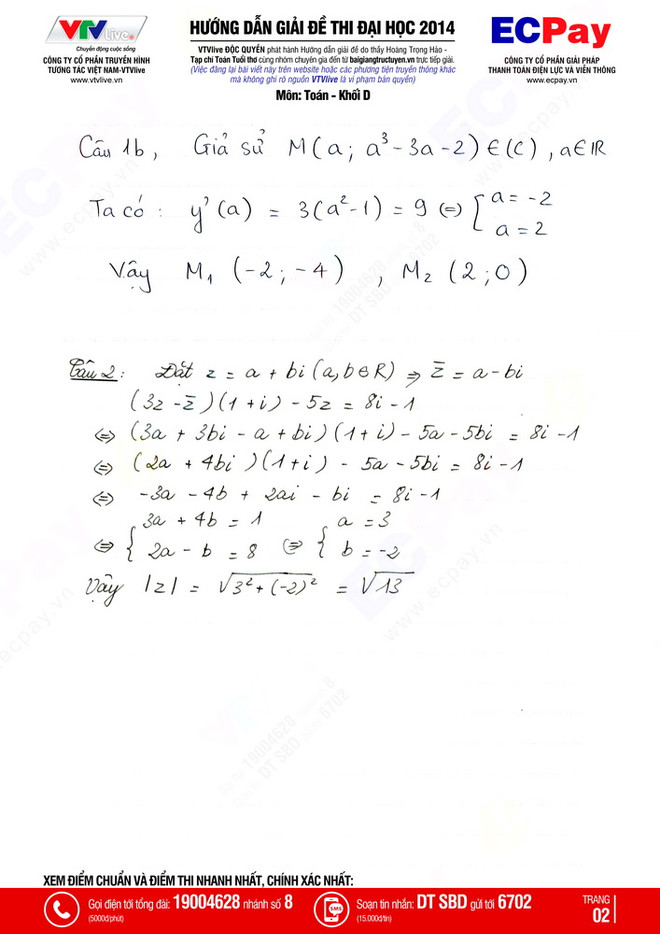 VTVLive
Chuyển động cuộc sống
CÔNG TY CỔ PHẦN TRUYỀN HÌNH
TƯƠNG TÁC VIỆT NAM-VTVlive
www.vtvlive.vn
HƯỚNG DẪN GIẢI ĐỀ THI ĐẠI HỌC 2014
VTVlive ĐỘC QUYỀN phát hành Hướng dẫn giải đề do thầy Hoàng Trọng Hảo -
Tạp chí Toán Tuổi thơ cùng nhóm chuyên gia đến từ baigiangtructuyen.vn trực tiếp giải.
(Việc đăng lại bài viết này trên website hoặc các phương tiện truyền thông khác
mà không ghi rõ nguồn VTVlive là vi phạm bản quyền)
Môn: Toán - Khối D
ECPay
CÔNG TY CỔ PHẦN GIẢI PHÁP
THANH TOÁN ĐIỆN LỰC VÀ VIỄN THÔNG
www.ecpay.vn
Câu 1b, Giả sử M(a; a³-3a-2) ∈ (C), a∈ℝ
Ta có: y'(a) = 3(a²-1) = 9 ⇔ [ a = -2
a = 2
Vậy M₁ (-2; -4), M₂ (2; 0)
Câu 2: Đặt z = a + bi (a, b ∈ R) ⇒ z̄ = a - bi
(3z - z̄)(1+i) - 5z = 8i - 1
⇔ (3a + 3bi - a + bi)(1+i) - 5a - 5bi = 8i - 1
⇔ (2a + 4bi)(1+i) - 5a - 5bi = 8i - 1
⇔ -3a - 4b + 2ai - bi = 8i - 1
⇔ { 3a + 4b = 1 ⇔ { a = 3
2a - b = 8 b = -2
Vậy |z| = √3² + (-2)² = √13
XEM ĐIỂM CHUẨN VÀ ĐIỂM THI NHANH NHẤT, CHÍNH XÁC NHẤT:
Gọi điện tới tổng đài: 19004628 nhánh số 8
(5000đ/phút)
SMS
Soạn tin nhắn: DT SBD gửi tới 6702
(15.000đ/tin)
TRANG
02